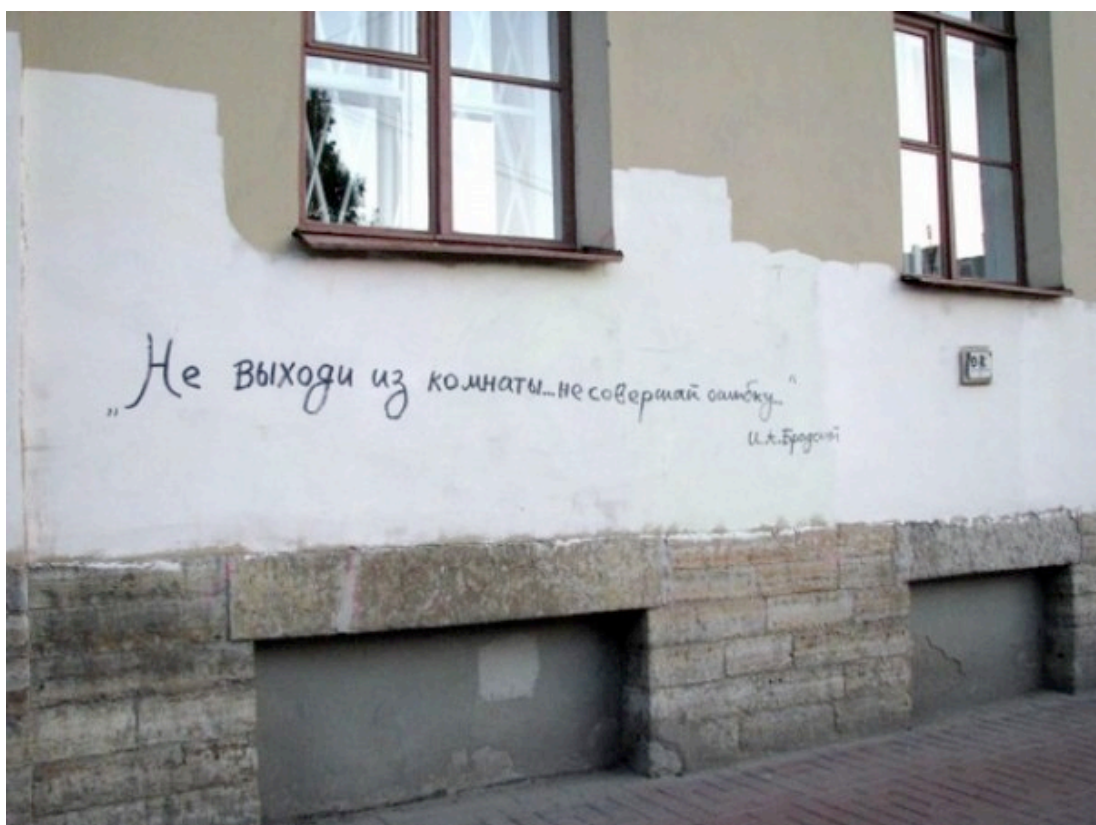 „Не выходи из комнаты...не совершай ошибку..."
И.А.Бродский